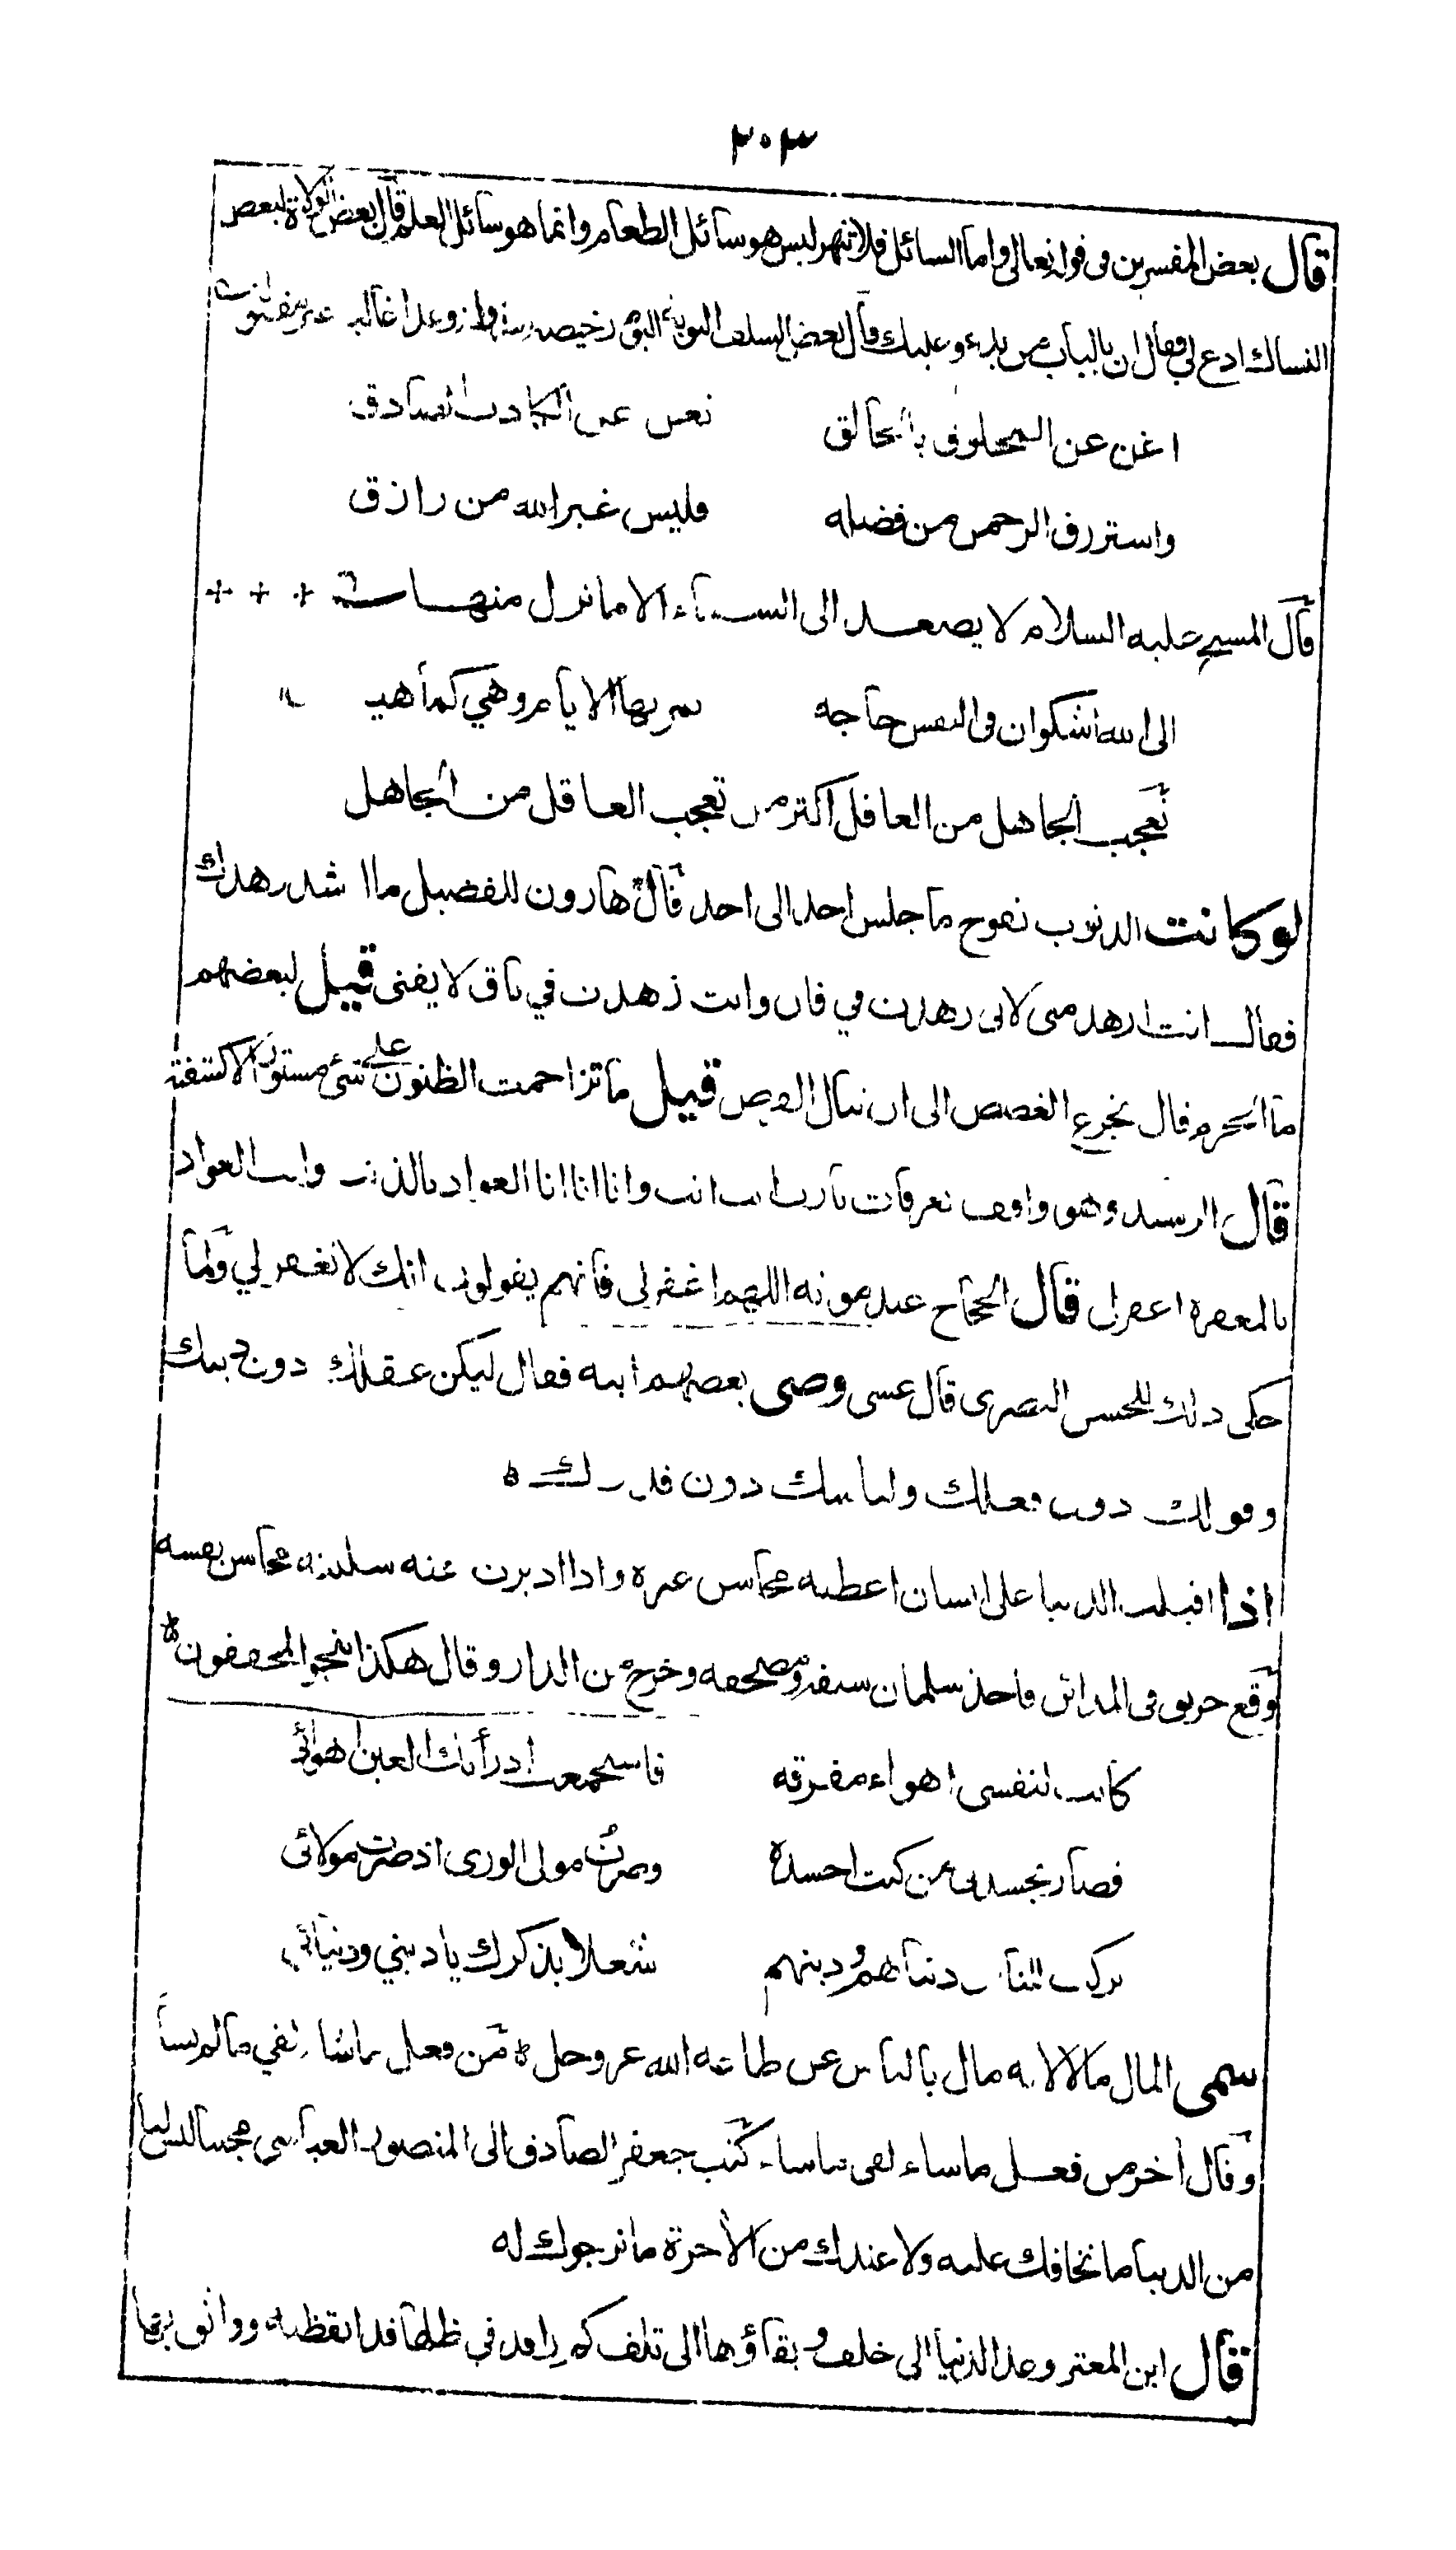 ٢٠٣
قال بعض المفسرين في قوله تعالى واما السائل فلا تنهر ليس هو سائل الطعام وانما هو سائل العلم قال بعض الولاة لبعض
النساك ادع لي فقال ان بالباب من يدعو عليك قال بعض السلف التوبة اليوم رخيصة مبذولة وغدا غالية غير مقبولة
اغن عن المخلوق بالخالق تغن عن الكاذب والصادق
واسترزق الرحمن من فضله فليس غير الله من رازق
قال المسيح عليه السلام لا يصعد الى السماء الا ما نزل منها ست + + +
الى الله اشكو ان في النفس حاجة تمر بها الايام وهي كما هيا
تعجب الجاهل من العاقل اكثر من تعجب العاقل من الجاهل
لو كانت الذنوب تفوح ما جلس احد الى احد قال هارون للفضيل ما اشد زهدك
فقال انت ازهد مني لاني زهدت في فان وانت زهدت في باق لا يفنى قيل لبعضهم
ما الحزم فقال تجرع الغصص الى ان تنال الفرص قيل ما تزاحمت الظنون على شئ مستور الا كشفته
قال الرشيد وهو واقف بعرفات يا رب انت انت وانا انا انا العواد بالذنب وانت العواد
بالمغفرة اغفر لي قال الحجاج عند موته اللهم اغفر لي فانهم يقولون انك لا تغفر لي ولما
حكى ذلك للحسن البصري قال عسى وصى بعضهم ابنه فقال ليكن عقلك دون دينك
وقولك دون فعلك ولباسك دون قدرك ه
اذا اقبلت الدنيا على انسان اعطته محاسن غيره واذا ادبرت عنه سلبته محاسن نفسه
وقع حريق في المدائن فاخذ سلمان سيفه ومصحفه وخرج من الدار وقال هكذا ينجو المخففون ه
كانت لنفسي اهواء مفرقة فاستجمعت اذ رأتك العين اهوائي
فصار يحسدني من كنت احسده وصرت مولى الورى اذ صرت مولائي
تركت للناس دنياهم ودينهم شغلا بذكرك يا ديني ودنيائي
سمى المال مالا لانه مال بالناس عن طاعة الله عز وجل ه من فعل ما شاء لقي ما لم يشأ
وقال آخر من فعل ما شاء لقي ما ساء كتب جعفر الصادق الى المنصور العباسي ليس لنا
من الدنيا ما نخافك عليه ولا عندك من الآخرة ما نرجوك له
قال ابن المعتز وعد الدنيا الى خلف وبقاؤها الى تلف كم راقد في ظلها قد ايقظته وواثق بها